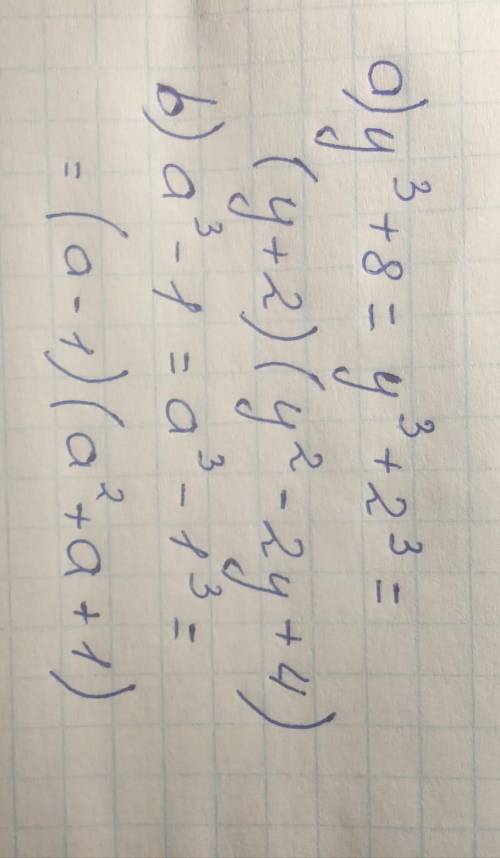 a) y³ + 8 = y³ + 2³ =
(y + 2)(y² - 2y + 4)
b) a³ - 1 = a³ - 1³ =
= (a - 1)(a² + a + 1)